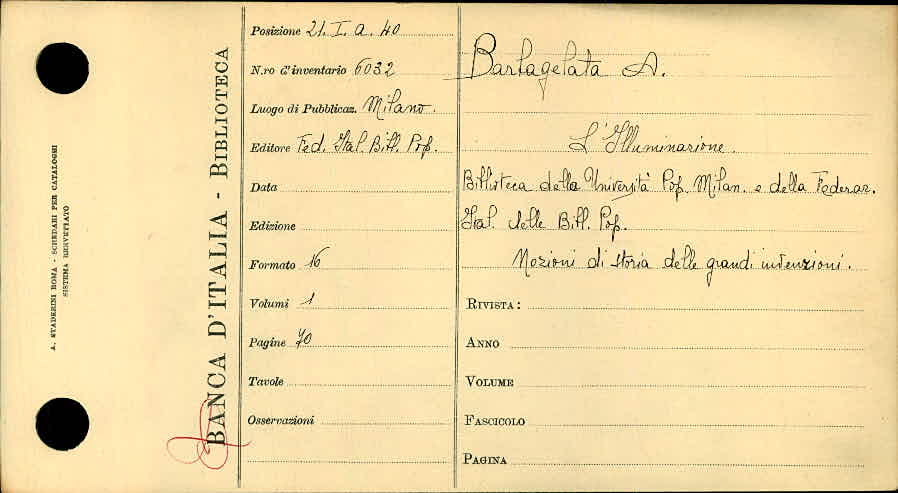 A. STADERINI ROMA - SCHEDARI PER CATALOGHI
SISTEMA BREVETTATO
BANCA D'ITALIA - BIBLIOTECA
Posizione 21. I. a. 40
N.ro d'inventario 6032
Luogo di Pubblicaz. Milano.
Editore Fed. Ital. Bibl. Pop.
Data
Edizione
Formato 16
Volumi 1
Pagine 70
Tavole
Osservazioni
Bartagelata A.
L'Illuminazione.
Biblioteca della Università Pop. Milan. e della Federaz.
Ital. delle Bibl. Pop.
Nozioni di storia delle grandi invenzioni.
RIVISTA:
ANNO
VOLUME
FASCICOLO
PAGINA